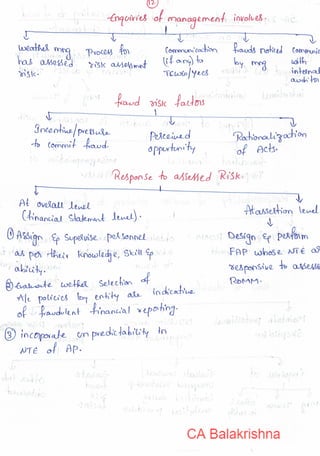 12
Enquiries of management involves.
Weather mng
has assessed
risk.
Process for
risk assessment
Communication
(if any) to
TCWG/yees
frauds noticed
by mng
Communic
with
internal
auditor
fraud risk factors
Incentive/pressure
to commit fraud.
Perceived
opportunity
Rationalization
of Acts.
Response to assessed Risk.
At overall level
(financial statement level).
At assertion level
① Assign & supervise personnel
as per their knowledge, skill &
ability.
② Evaluate wether selection of
A/c policies by entity are indicative
of fraudulent financial reporting.
③ incorporate unpredictability in
NTE of AP.
Design & perform
FAP whose NTE a
responsive to assesse
ROMM.
CA Balakrishna